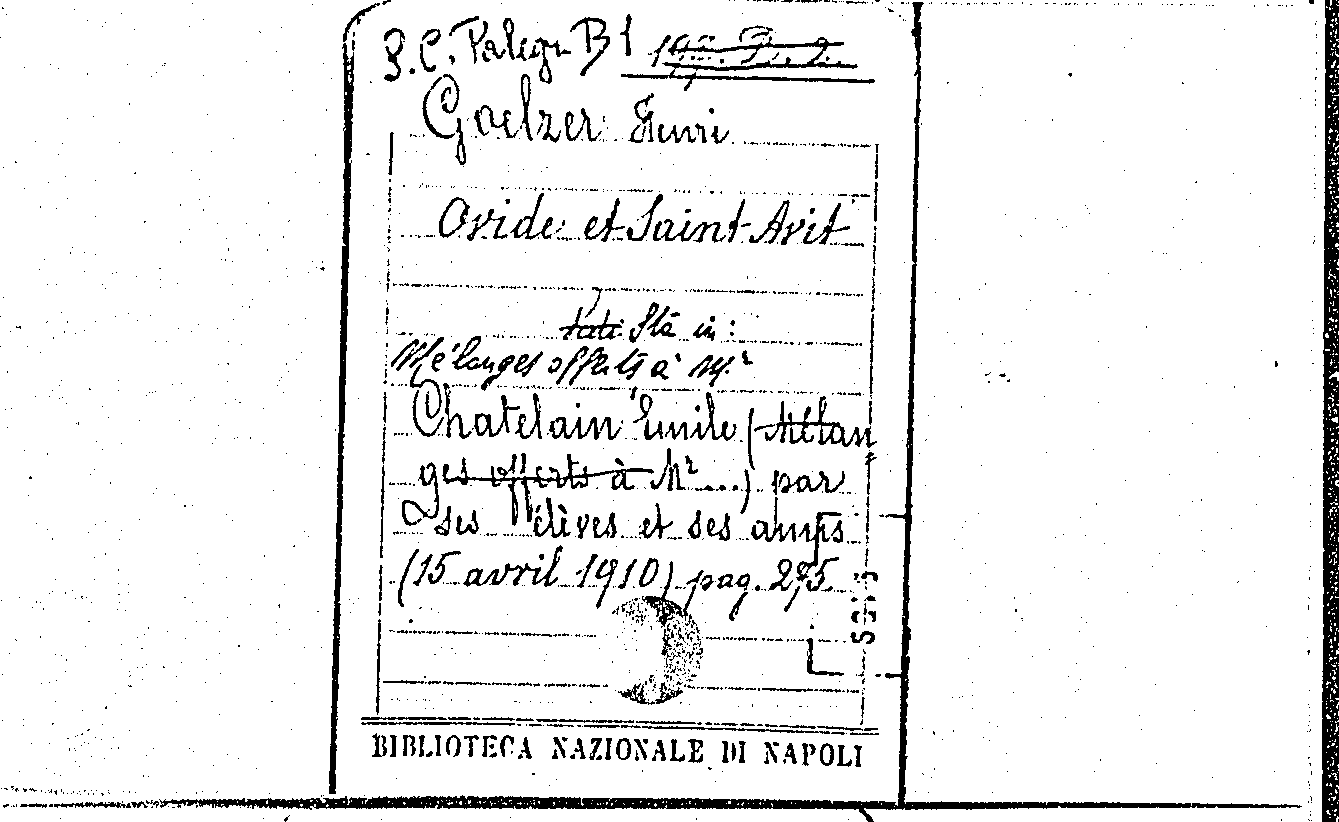 S.C. Palegr B 1
Goelzer Henri
Ovide et Saint Avit
Sta in:
Mélanges offerts à Mr
Chatelain Emile (Mélan
ges offerts à Mr ...) par
ses élèves et ses amis
(15 avril 1910) pag. 275
BIBLIOTECA NAZIONALE DI NAPOLI